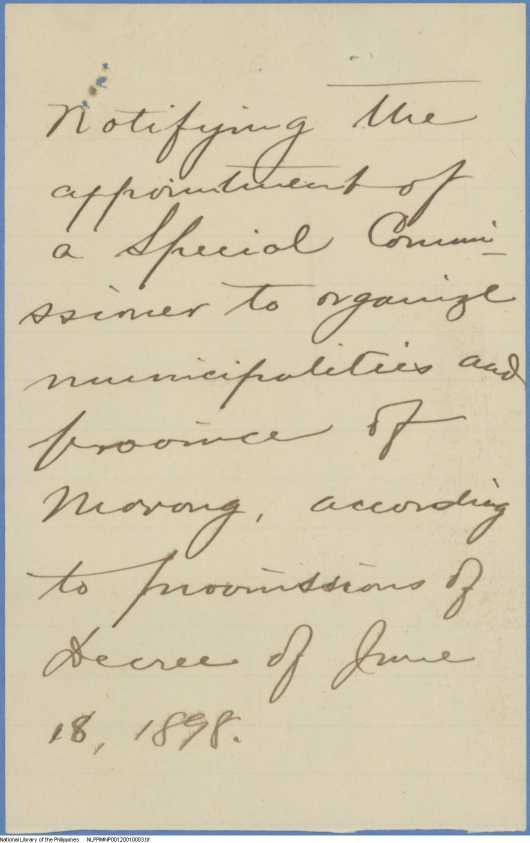 Notifying the
appointment of
a Special Commi-
ssioner to organize
municipalities and
province of
Morong, according
to provissions of
Decree of June
18, 1898.
National Library of the Philippines NLPPIMNP00120010003.tif